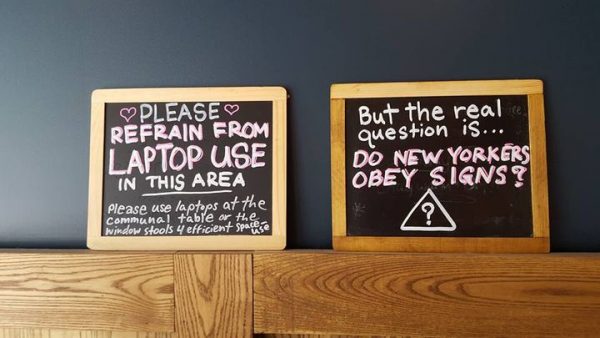 PLEASE
REFRAIN FROM
LAPTOP USE
IN THIS AREA
Please use laptops at the
communal table or the
window stools 4 efficient space-
use
But the real
question is...
DO NEW YORKERS
OBEY SIGNS?
?